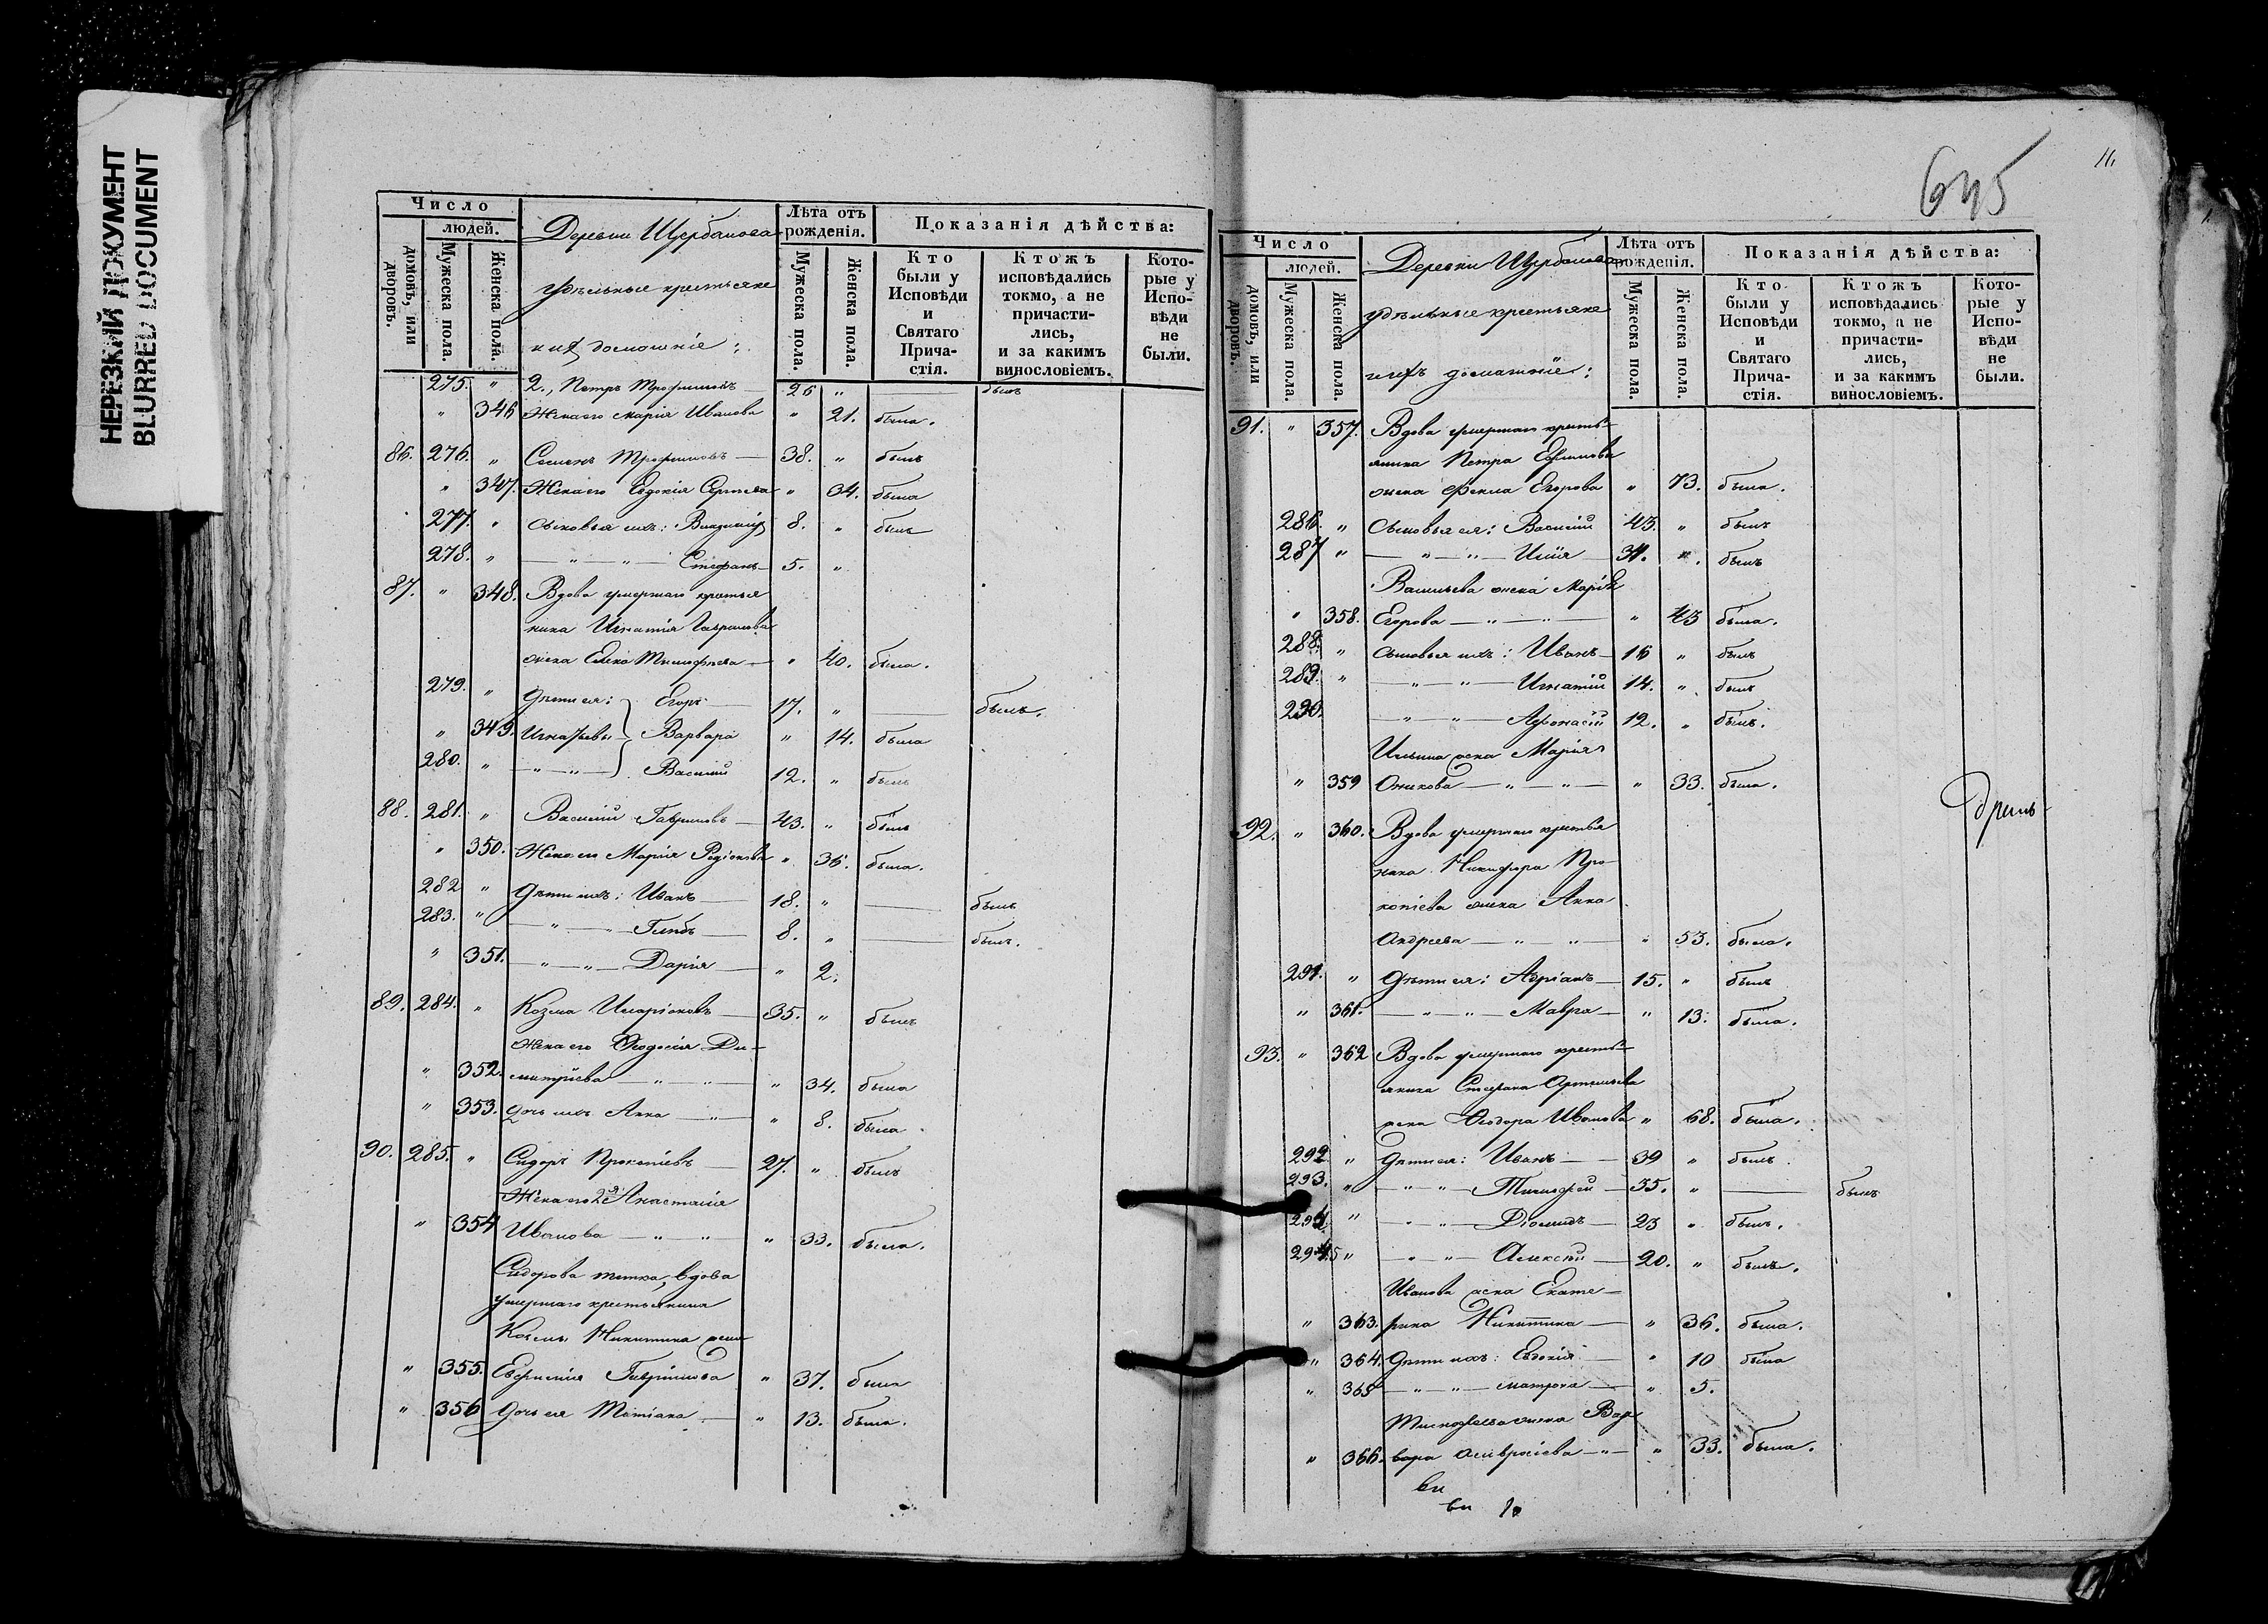 НЕРЕЗКИЙ ДОКУМЕНТ
BLURRED DOCUMENT
Число
людей.
домовъ, или дворовъ.
Мужеска пола.
Женска пола.
Деревни Щербакова
удѣльные крестьяне
и ихъ домошніе:
Лѣта отъ рожденія.
Мужеска пола.
Женска пола.
Показанія дѣйства:
Кто были у Исповѣди и Святаго Прича-стія.
Ктожъ исповѣдались токмо, а не причасти-лись, и за какимъ винословіемъ.
Кото-рые у Испо-вѣди не были.
275. " 2., Петръ Трофимовъ 26 " — былъ
" 346 Жена его Марія Иванова " 21. была.
86. 276. " Семенъ Трофимовъ — 38. " былъ
" 347. Жена его Евдокія Сергѣева " 34. была
277. " Сыновья ихъ: Владиміръ 8. " былъ
278. " — " — " — Стефанъ 5. "
87. " 348. Вдова умершаго крестья
нина Игнатія Гаврилова
жена Елена Тимофѣева — " 40. была.
279. " Дѣти ея: Егоръ 17. " — былъ.
" 349. Игнатьевы Варвара " 14. была
280. " — " — " — Василій 12. " былъ
88. 281. " Василій Гавриловъ — 43. " былъ
" 350. Жена его Марія Родіонова " 36. была.
282 " Дѣти ихъ: Иванъ — 18. " — былъ
283. " — " — " Глѣбъ — 8. " — былъ.
" 351. — " — " — Дарія — " 2.
89. 284. " Козма Иларіоновъ — 35. " былъ
Жена его Ѳеодосія Ди-
" 352. митріева — " — " — " 34. была
" 353. Дочь ихъ Анна — " — " 8. была
90. 285. " Сидоръ Прокопіевъ — 27. " былъ
Жена его 2я Анастасія
" 354 Иванова — " — " — " 33. была.
Сидорова тетка, вдова
умершаго крестьянина
Козмы Никитина жена
" 355. Евфимія Гаврилова " 37. была
" 356 Дочь ея Татіана — " 13. была.
645
Число
людей.
домовъ, или дворовъ.
Мужеска пола.
Женска пола.
Деревни Щербакова
удѣльные крестьяне
и ихъ домашніе:
Лѣта отъ рожденія.
Мужеска пола.
Женска пола.
Показанія дѣйства:
Кто были у Исповѣди и Святаго Прича-стія.
Ктожъ исповѣдались токмо, а не причасти-лись, и за какимъ винословіемъ.
Кото-рые у Испо-вѣди не были.
91. " 357. Вдова умершаго кресть-
янина Петра Евфимова
жена Фекла Егорова " 73. была.
286. " Сыновья ея: Василій 43. " былъ
287 " — " — " — Илія — 31. " былъ
Васильева жена Марія
" 358. Егорова — " — " — " 43 была.
288. " Сыновья ихъ: Иванъ — 16 " былъ
289. " — " — " — Игнатій 14. " былъ
290. — " — " — Афонасій 12. " былъ.
Ильина жена Марія
" 359 Оникова — " — " — " 33. была.
92. " 360. Вдова умершаго крестья
нина Никифора Про-
копіева жена Анна
Андреева — " — " — " 53. была.
291. " Дѣти ея: Адріанъ — 15. " былъ
" 361. — " — " — Мавра — " 13. была.
93. " 362 Вдова умершаго кресть-
янина Стефана Артемьева
жена Ѳеодора Иванова " 68. была.
292 " Дѣти ея: Иванъ — 39 " былъ
293. " — " — " — Тимофей — 35. " — былъ
294. " — " — " — Діомидъ — 23 " былъ.
295 " — " — " — Алексѣй — 20. " былъ.
Иванова жена Екате-
" 363. рина Никитина — " 36. была.
" 364. Дѣти ихъ: Евдокія — " 10 была
" 365 — " — " — Матрона — " 5.
Тимофеева жена Вар
" 366. вара Амвросіева — " — " 33. была.